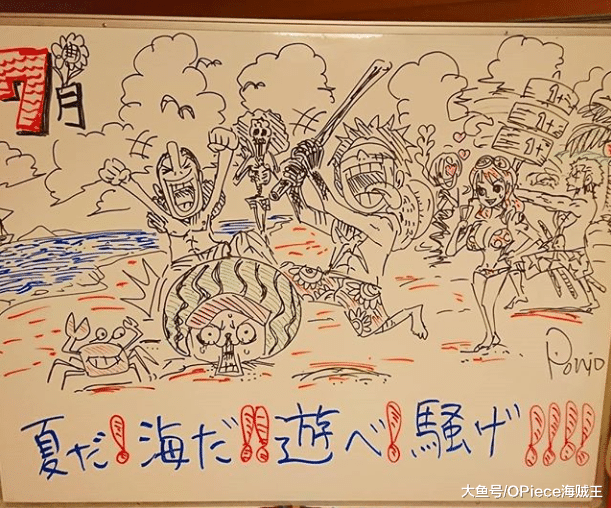 7月
1t
1t
1t
Ponjo
夏だ!海だ!!遊べ!騒げ!!!!
大鱼号/OPiece海贼王